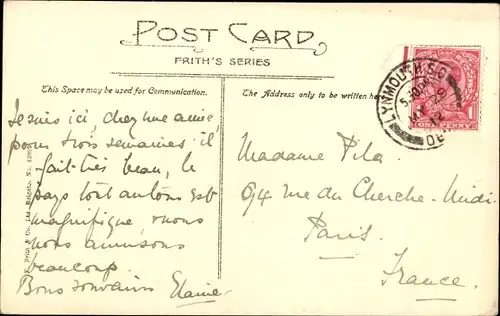 POST CARD
FRITH'S SERIES
This Space may be used for Communication.
The Address only to be written here
LYNMOUTH S.O.
5.30PM
MY 9
12
DEVON
ONE PENNY
Je suis ici, chez une amie,
pour trois semaines il
fait très beau, le
pays tout autour est
magnifique, nous
nous amusons
beaucoup.
Bons souvenirs Elaine
Madame Pila
94 rue du Cherche-Midi
Paris.
France.
F. Frith & Co., Ltd., Reigate. No.